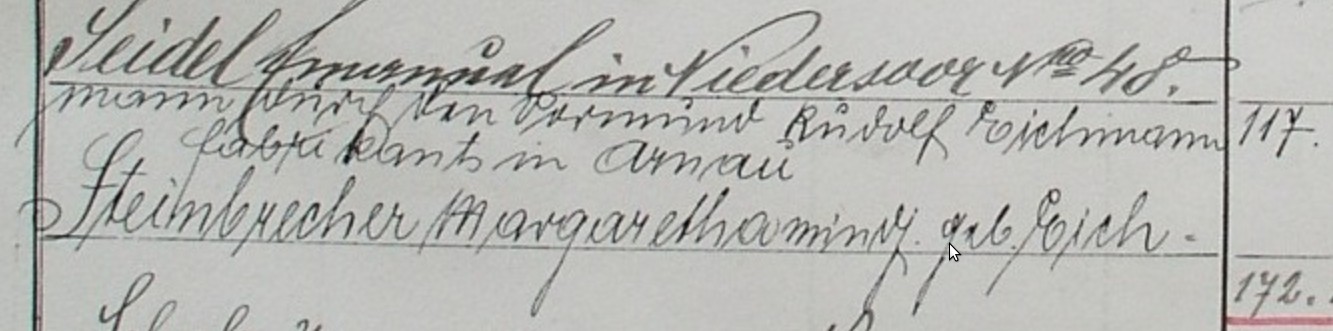 Seidel Emanuel in Niedersoor Nro 48.
mann durch den Vormund Rudolf Eichmann 117.
Fabrikants in Arnau
Steinbrecher Margaretha mindj. geb. Eich-
172.